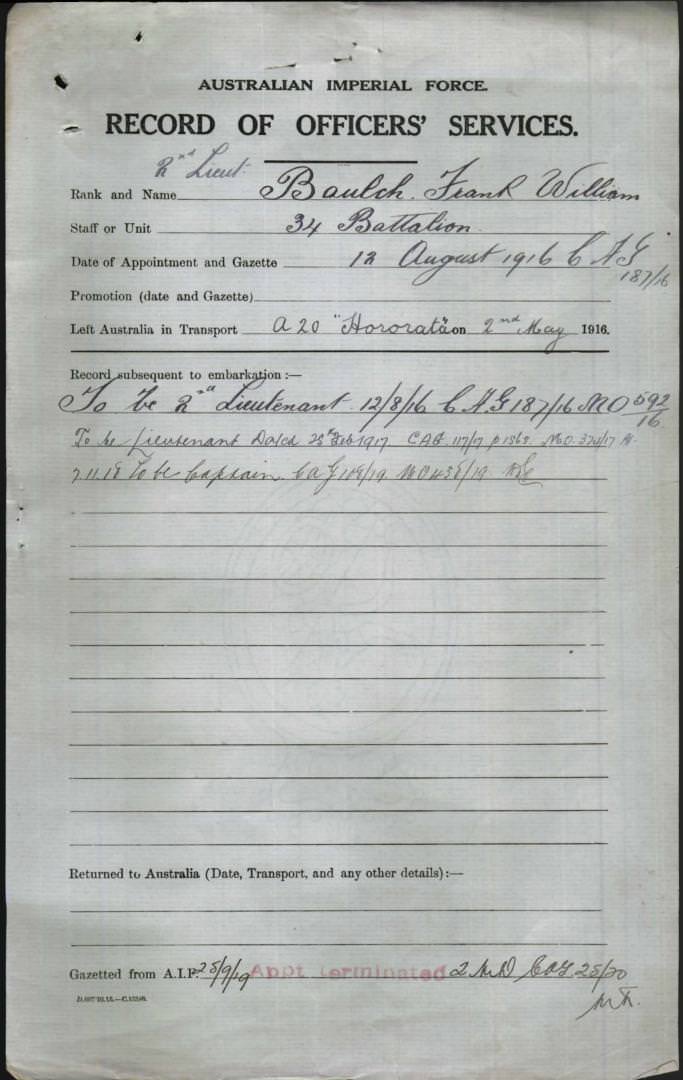 AUSTRALIAN IMPERIAL FORCE.
RECORD OF OFFICERS' SERVICES.
2nd Lieut.
Rank and Name Baulch. Frank William
Staff or Unit 34 Battalion.
Date of Appointment and Gazette 12 August 1916 C A G
187/16
Promotion (date and Gazette)
Left Australia in Transport A 20 "Hororata" on 2nd May 1916.
Record subsequent to embarkation:—
To be 2nd Lieutenant 12/8/16 C.A.G 187/16 MO 592/16
To be Lieutenant Dated 25th Feb 1917 CAG 117/17 p 1568. MO. 374/17
7.11.18 To be Captain. CAG 108/19. MO 438/19.
Returned to Australia (Date, Transport, and any other details):—
Gazetted from A.I.F. 25/9/19 Appt terminated 2 MD CAG 25/20